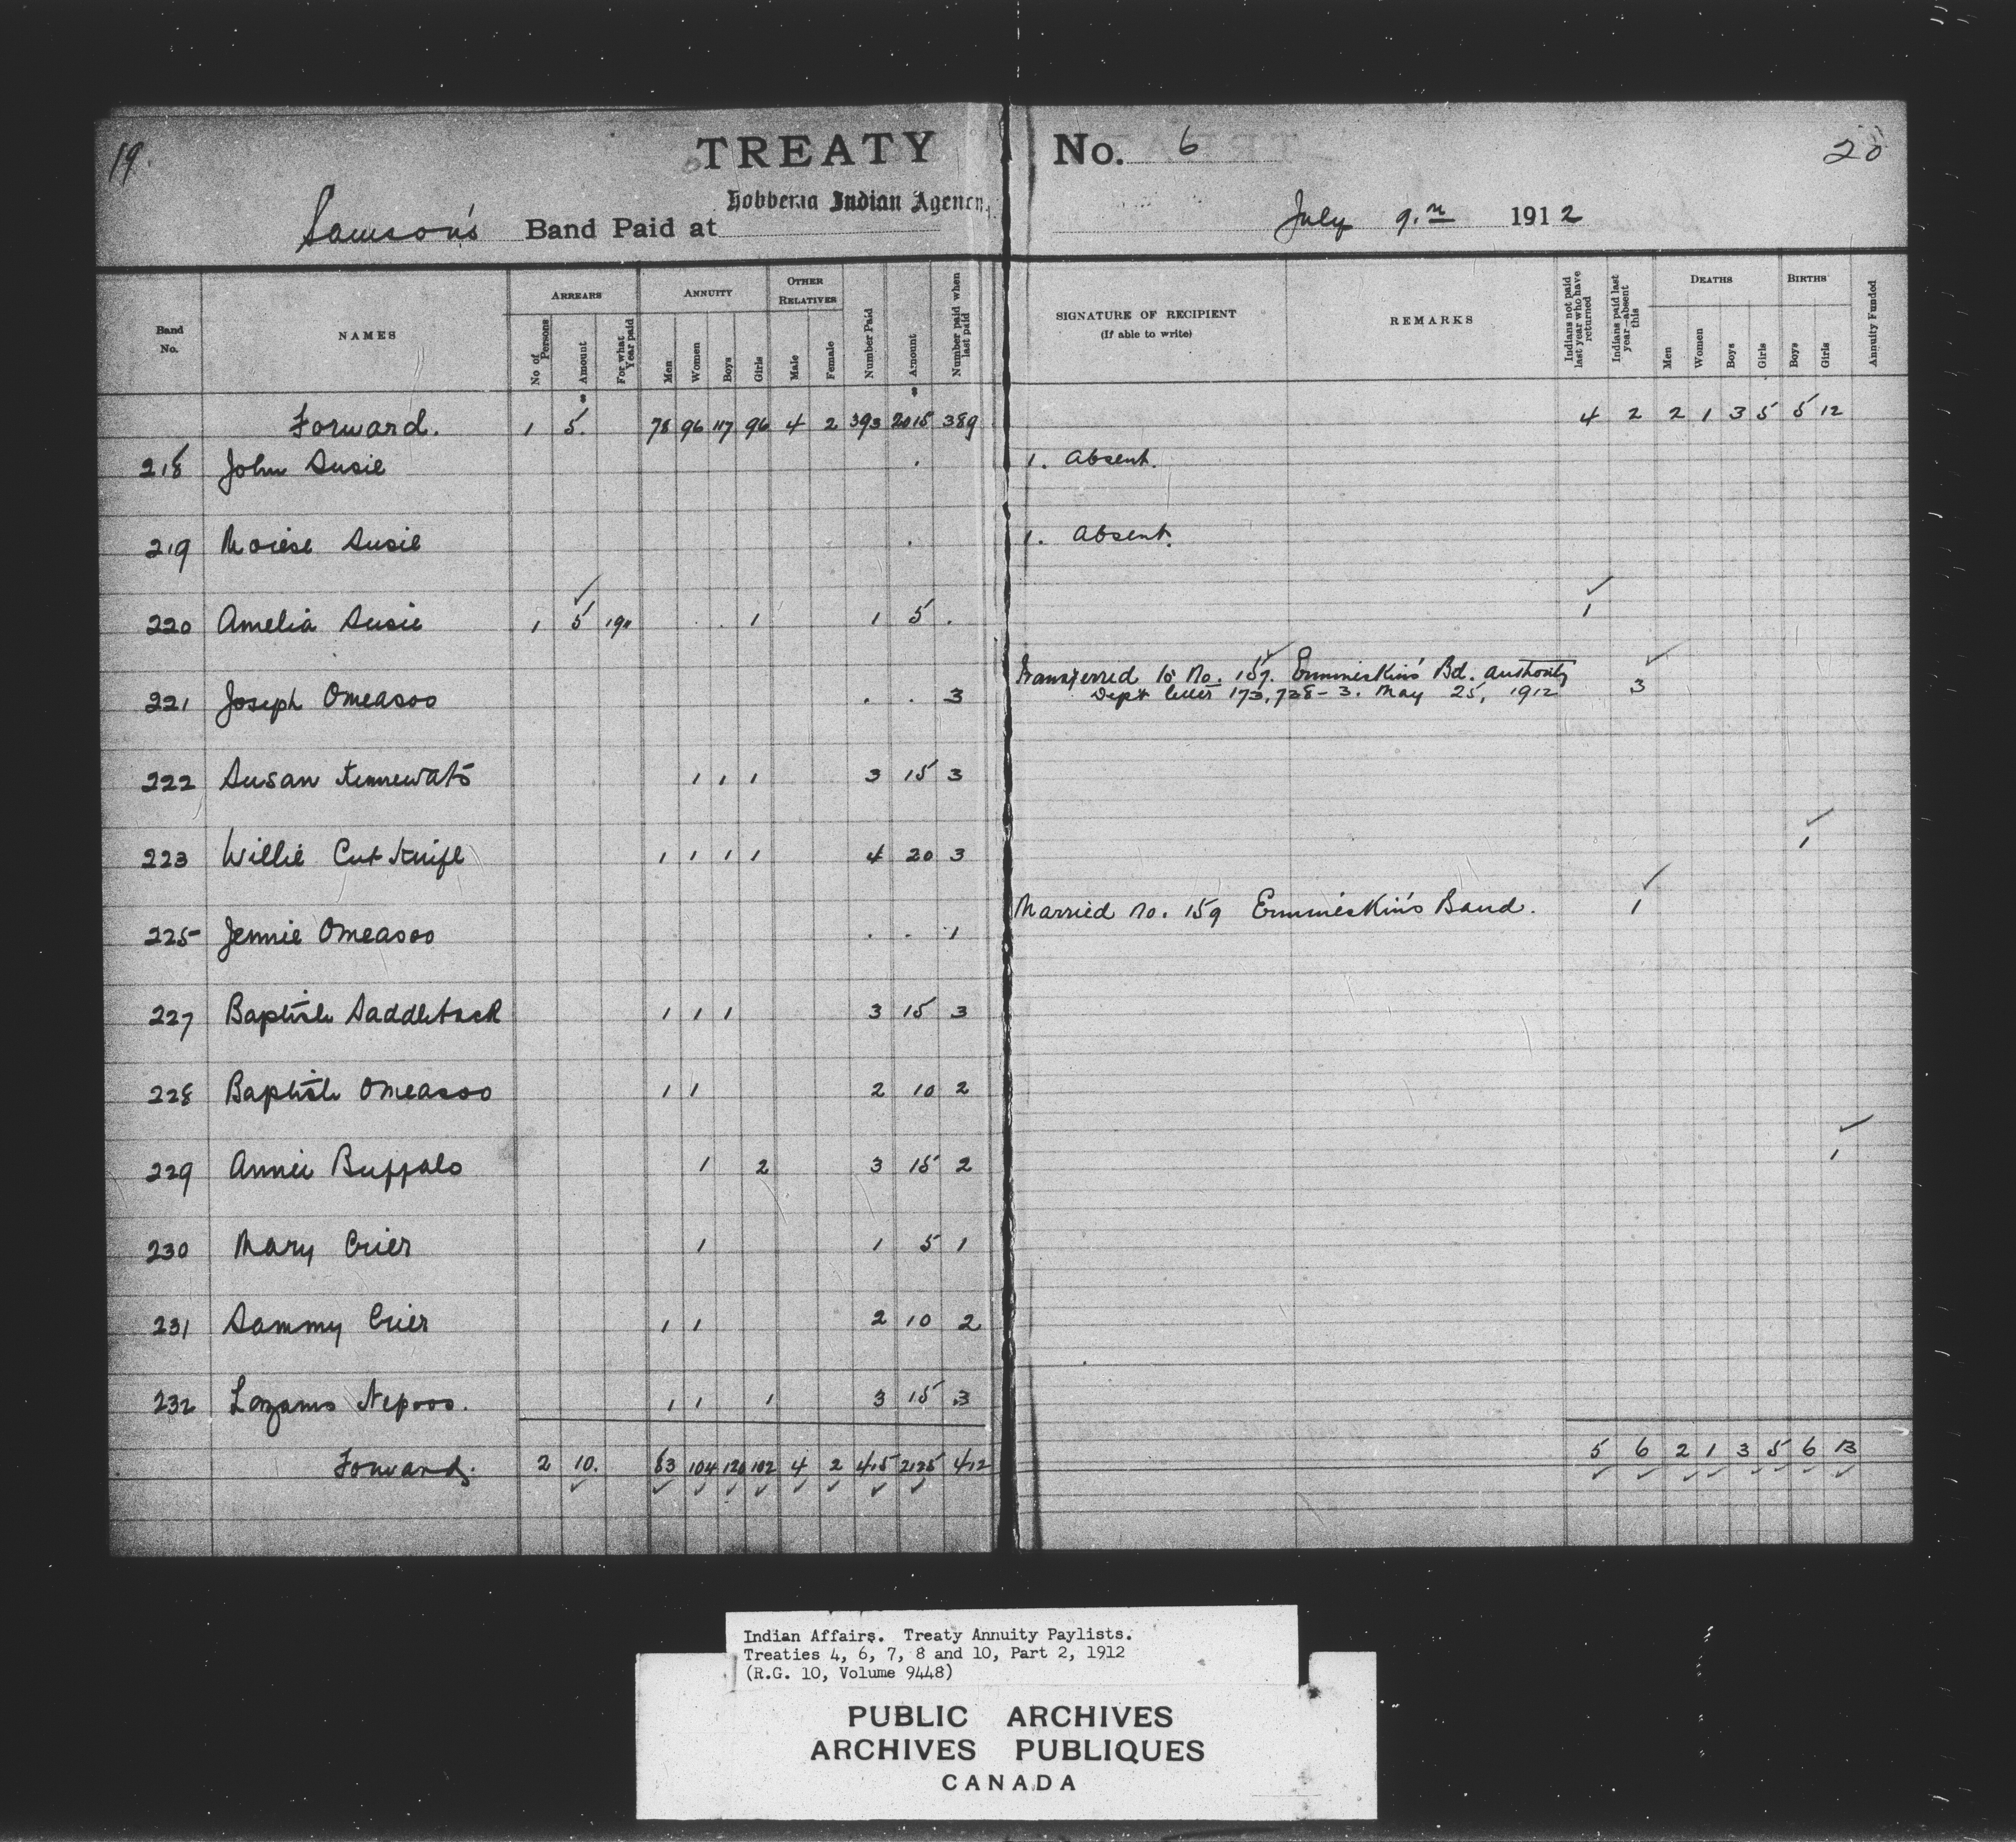 19. TREATY No. 6 20
Hobbema Indian Agency
Samson's Band Paid at July 9th 1912
Band No. NAMES ARREARS ANNUITY OTHER RELATIVES Number Paid Amount Number paid when last paid SIGNATURE OF RECIPIENT (If able to write) REMARKS Indians not paid last year who have returned Indians paid last year—absent this DEATHS BIRTHS Annuity Funded
No of Persons Amount For what Year paid Men Women Boys Girls Male Female Men Women Boys Girls Boys Girls
Forward. 1 5. 78 96 117 96 4 2 393 2015 389 4 2 2 1 3 5 5 12
218 John Susie 1. Absent.
219 Moiese Susie 1. Absent.
220 Amelia Susie 1 5 1911 1 1 5 . 1
221 Joseph Omeasoo . . 3 Transferred to No. 157. Ermineskin's Bd. authority 3
Dept letter 173,738-3. May 25, 1912
222 Susan 1 1 1 3 15 3
223 Willie Cut Knife 1 1 1 1 4 20 3 1
225 Jennie Omeasoo . . 1 Married No. 159 Ermineskin's Band. 1
227 Baptiste Saddleback 1 1 1 3 15 3
228 Baptiste Omeasoo 1 1 2 10 2
229 Annie Buffalo 1 2 3 15 2 1
230 Mary Crier 1 1 5 1
231 Sammy Crier 1 1 2 10 2
232 Nepoos. 1 1 1 3 15 3
Forward. 2 10. 83 104 120 102 4 2 415 2125 412 5 6 2 1 3 5 6 13
Indian Affairs. Treaty Annuity Paylists.
Treaties 4, 6, 7, 8 and 10, Part 2, 1912
(R.G. 10, Volume 9448)
PUBLIC ARCHIVES
ARCHIVES PUBLIQUES
CANADA